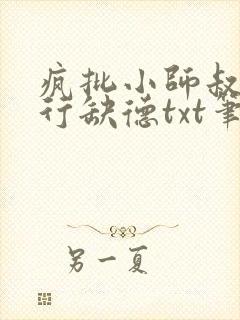 疯批小师叔
行缺德txt笔
另一夏